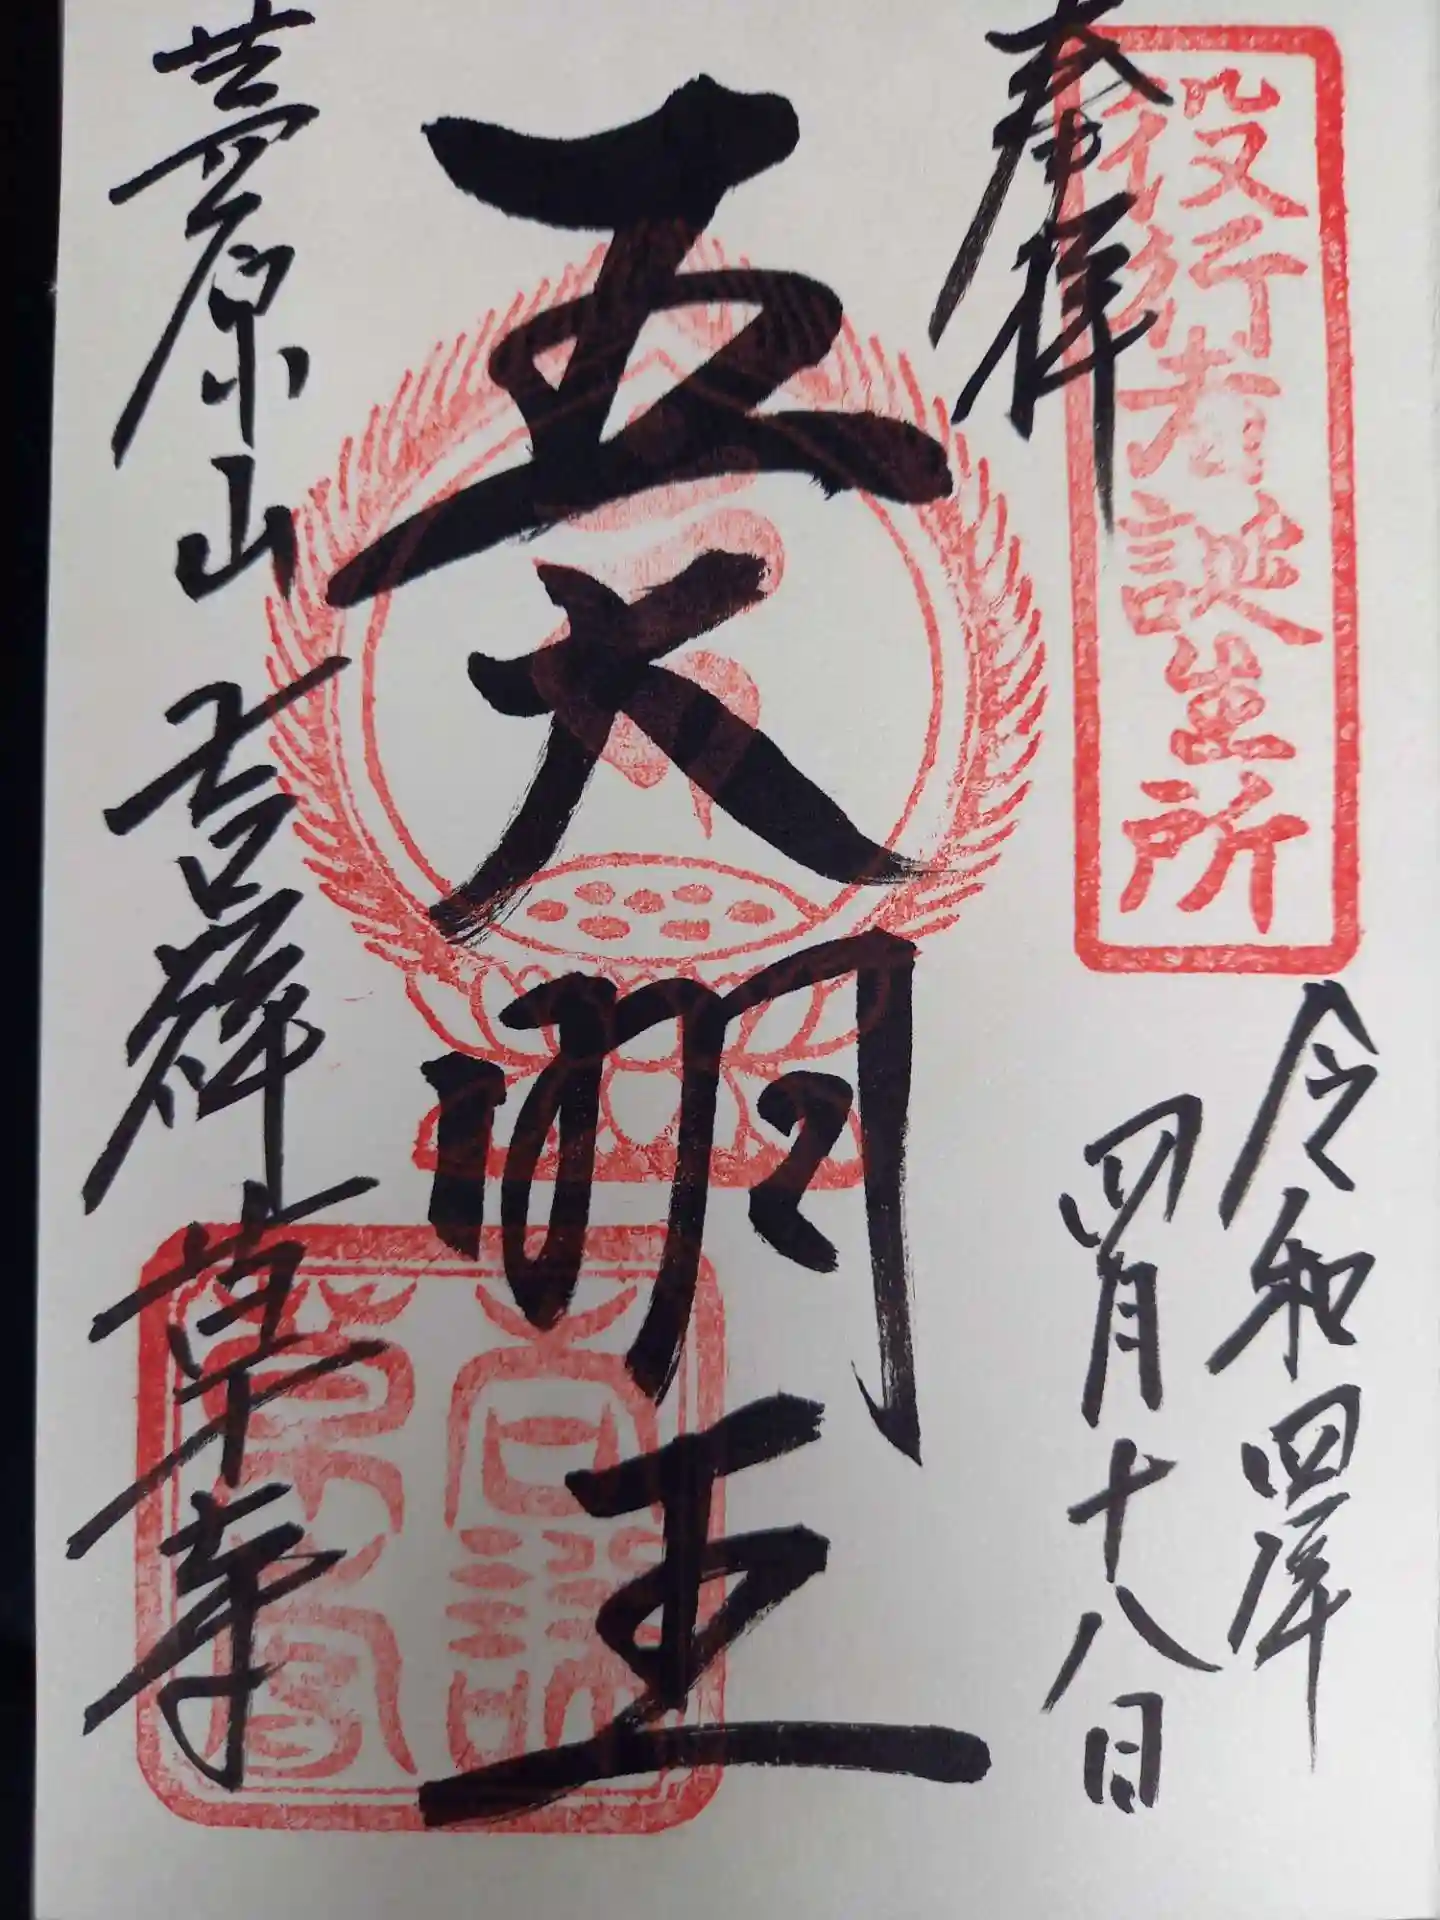 奉拝
役行者誕生所
令和四年
四月十八日
五大明王
茅原山 吉祥草寺